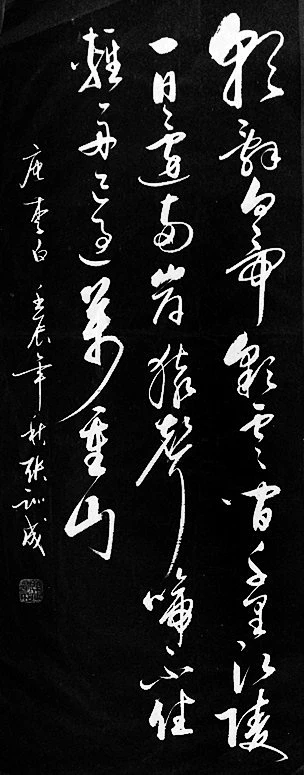 朝辭白帝彩雲間千里江陵
一日還兩岸猿聲啼不住
輕舟已過萬重山
唐李白 壬辰年秋張訓成